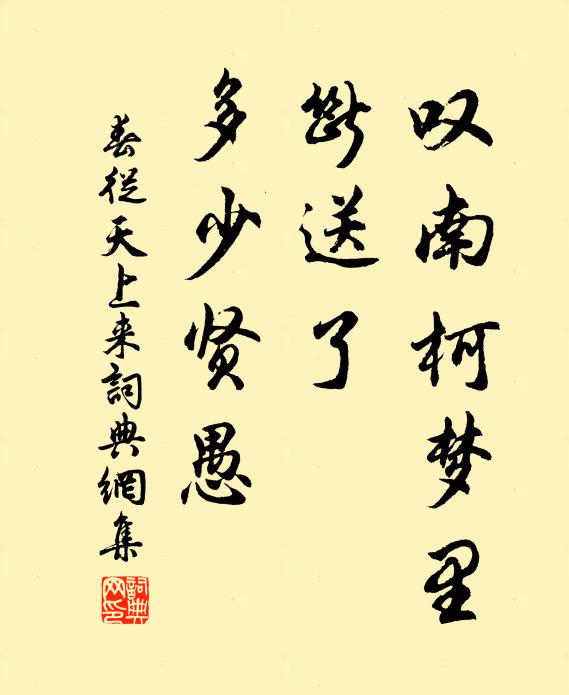 叹南柯梦里
断送了
多少贤愚
春从天上来詞典網集
詞典網印